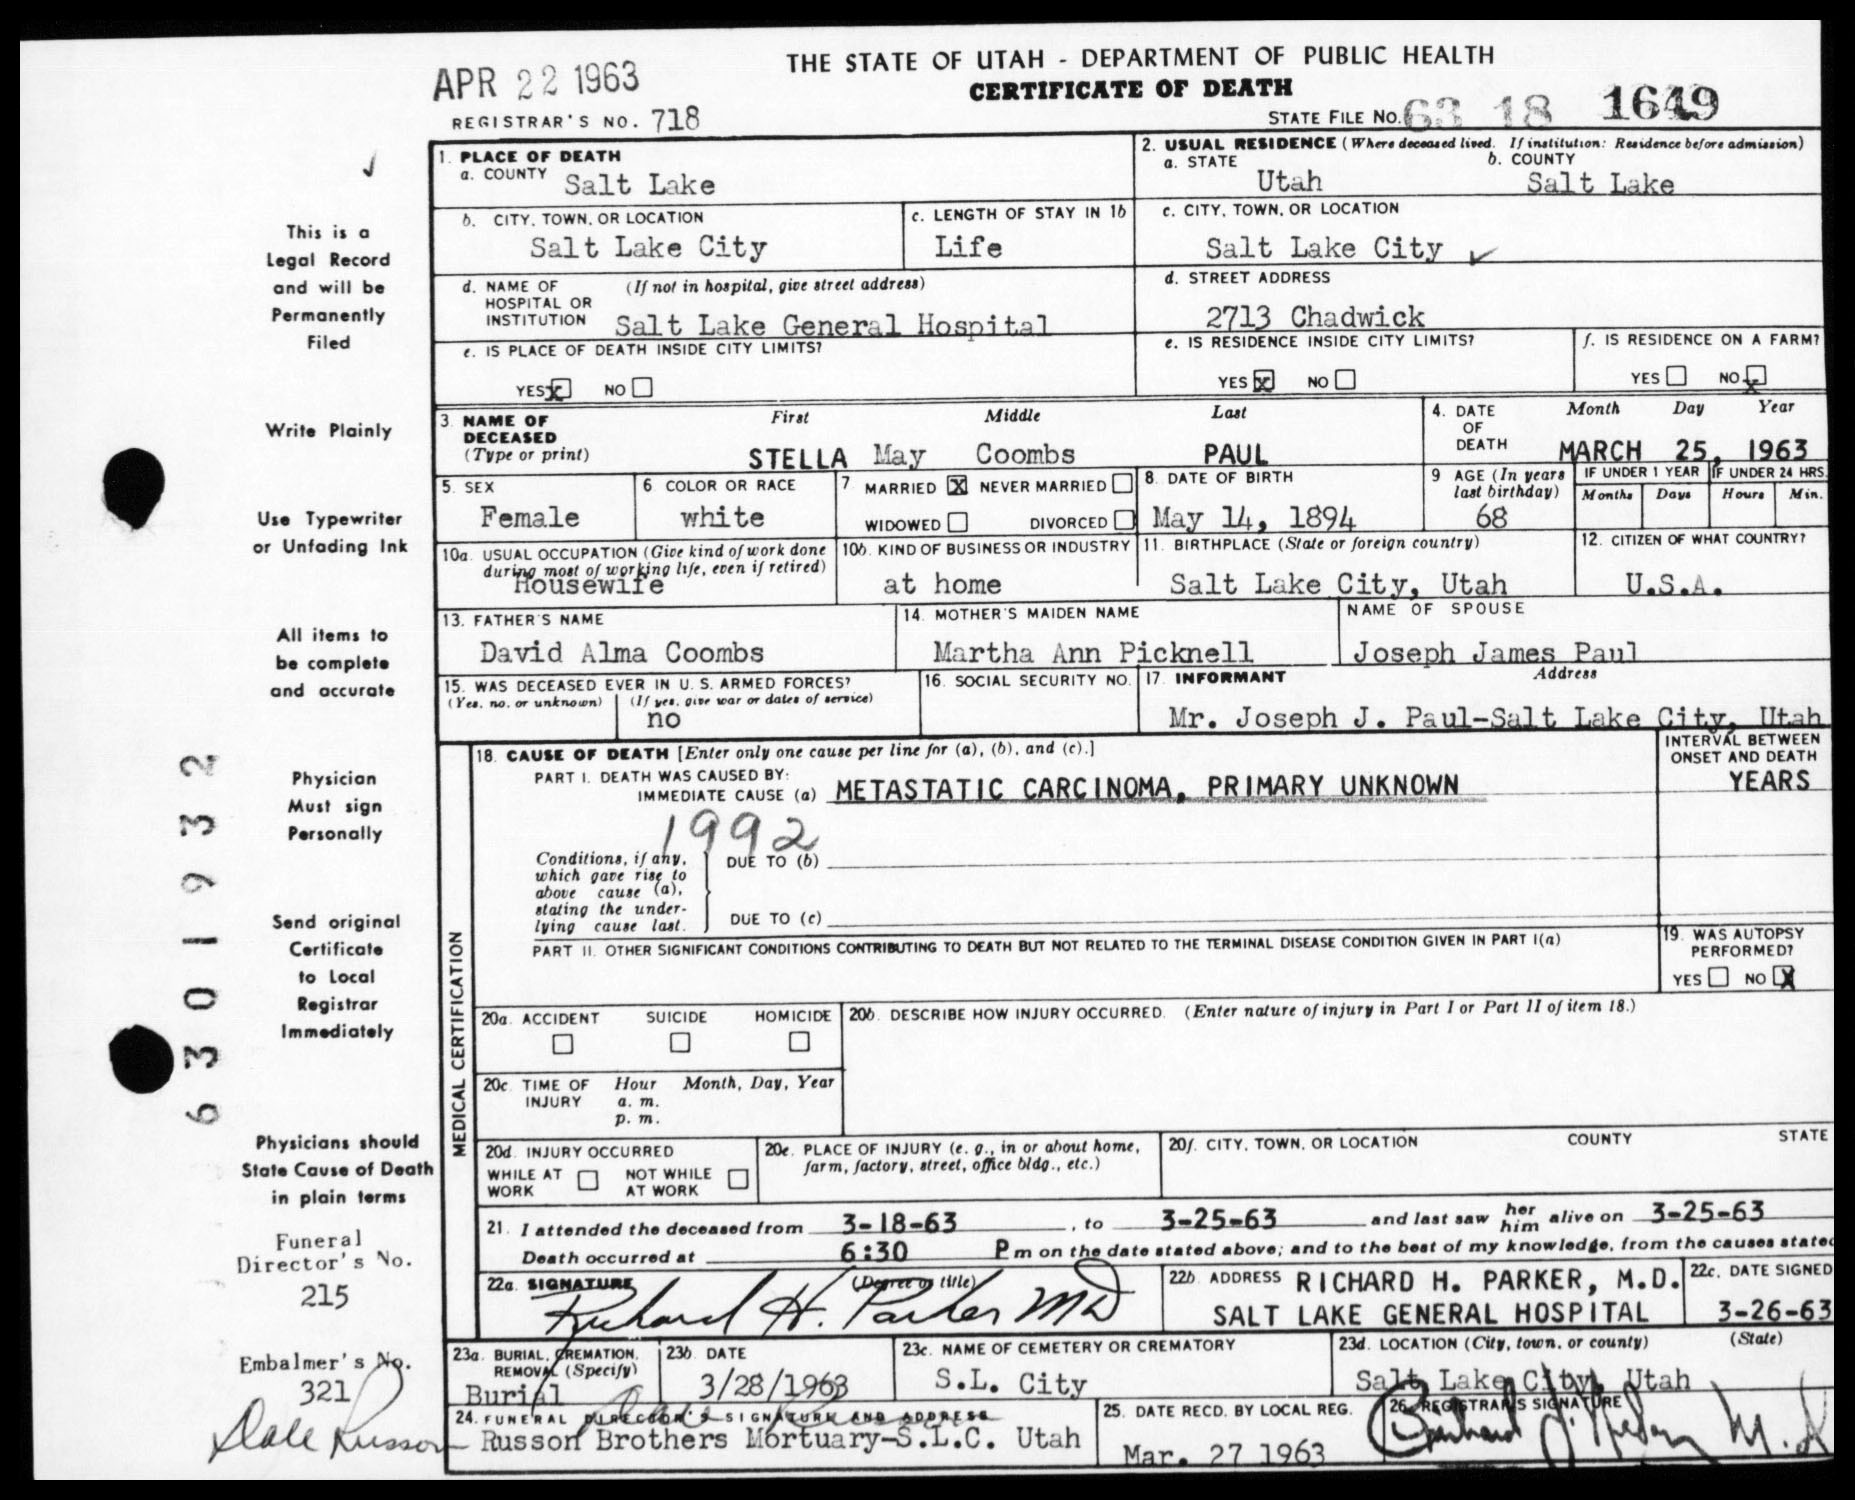 THE STATE OF UTAH - DEPARTMENT OF PUBLIC HEALTH
APR 22 1963
CERTIFICATE OF DEATH
REGISTRAR'S NO. 718
STATE FILE NO. 63 18 1649
1. PLACE OF DEATH
a. COUNTY Salt Lake
2. USUAL RESIDENCE (Where deceased lived. If institution: Residence before admission)
a. STATE Utah b. COUNTY Salt Lake
b. CITY, TOWN, OR LOCATION Salt Lake City
c. LENGTH OF STAY IN 1b Life
c. CITY, TOWN, OR LOCATION Salt Lake City
d. NAME OF HOSPITAL OR INSTITUTION (If not in hospital, give street address) Salt Lake General Hospital
d. STREET ADDRESS 2713 Chadwick
e. IS PLACE OF DEATH INSIDE CITY LIMITS?
YES x NO
e. IS RESIDENCE INSIDE CITY LIMITS?
YES x NO
f. IS RESIDENCE ON A FARM?
YES NO x
3. NAME OF DECEASED (Type or print)
First Middle Last
STELLA May Coombs PAUL
4. DATE OF DEATH Month Day Year
MARCH 25, 1963
5. SEX Female
6. COLOR OR RACE white
7. MARRIED X NEVER MARRIED
WIDOWED DIVORCED
8. DATE OF BIRTH May 14, 1894
9 AGE (In years last birthday) 68
IF UNDER 1 YEAR Months Days
IF UNDER 24 HRS. Hours Min.
10a. USUAL OCCUPATION (Give kind of work done during most of working life, even if retired) Housewife
10b. KIND OF BUSINESS OR INDUSTRY at home
11. BIRTHPLACE (State or foreign country) Salt Lake City, Utah
12. CITIZEN OF WHAT COUNTRY? U.S.A.
13. FATHER'S NAME David Alma Coombs
14. MOTHER'S MAIDEN NAME Martha Ann Picknell
NAME OF SPOUSE Joseph James Paul
15. WAS DECEASED EVER IN U. S. ARMED FORCES?
(Yes, no, or unknown) (If yes, give war or dates of service)
no
16. SOCIAL SECURITY NO.
17. INFORMANT Address
Mr. Joseph J. Paul-Salt Lake City, Utah
MEDICAL CERTIFICATION
18. CAUSE OF DEATH [Enter only one cause per line for (a), (b), and (c).]
INTERVAL BETWEEN ONSET AND DEATH
PART I. DEATH WAS CAUSED BY:
IMMEDIATE CAUSE (a) METASTATIC CARCINOMA, PRIMARY UNKNOWN
YEARS
1992
Conditions, if any, which gave rise to above cause (a), stating the under-lying cause last.
DUE TO (b)
DUE TO (c)
PART II. OTHER SIGNIFICANT CONDITIONS CONTRIBUTING TO DEATH BUT NOT RELATED TO THE TERMINAL DISEASE CONDITION GIVEN IN PART I(a)
19. WAS AUTOPSY PERFORMED?
YES NO X
20a. ACCIDENT SUICIDE HOMICIDE
20b. DESCRIBE HOW INJURY OCCURRED. (Enter nature of injury in Part I or Part II of item 18.)
20c. TIME OF INJURY Hour Month, Day, Year
a. m.
p. m.
20d. INJURY OCCURRED
WHILE AT WORK NOT WHILE AT WORK
20e. PLACE OF INJURY (e. g., in or about home, farm, factory, street, office bldg., etc.)
20f. CITY, TOWN, OR LOCATION COUNTY STATE
21. I attended the deceased from 3-18-63, to 3-25-63 and last saw her him alive on 3-25-63
Death occurred at 6:30 P m on the date stated above; and to the best of my knowledge, from the causes stated
22a. SIGNATURE (Degree or title)
Richard H. Parker MD
22b. ADDRESS RICHARD H. PARKER, M.D.
SALT LAKE GENERAL HOSPITAL
22c. DATE SIGNED
3-26-63
23a. BURIAL, CREMATION, REMOVAL (Specify) Burial
23b. DATE 3/28/1963
23c. NAME OF CEMETERY OR CREMATORY S.L. City
23d. LOCATION (City, town, or county) (State)
Salt Lake City, Utah
24. FUNERAL DIRECTOR'S SIGNATURE AND ADDRESS
Dale Russon
Russon Brothers Mortuary-S.L.C. Utah
25. DATE RECD. BY LOCAL REG.
Mar. 27 1963
26. REGISTRAR'S SIGNATURE
This is a
Legal Record
and will be
Permanently
Filed
Write Plainly
Use Typewriter
or Unfading Ink
All items to
be complete
and accurate
Physician
Must sign
Personally
Send original
Certificate
to Local
Registrar
Immediately
Physicians should
State Cause of Death
in plain terms
Funeral
Director's No.
215
Embalmer's No.
321
Dale Russon
6301932